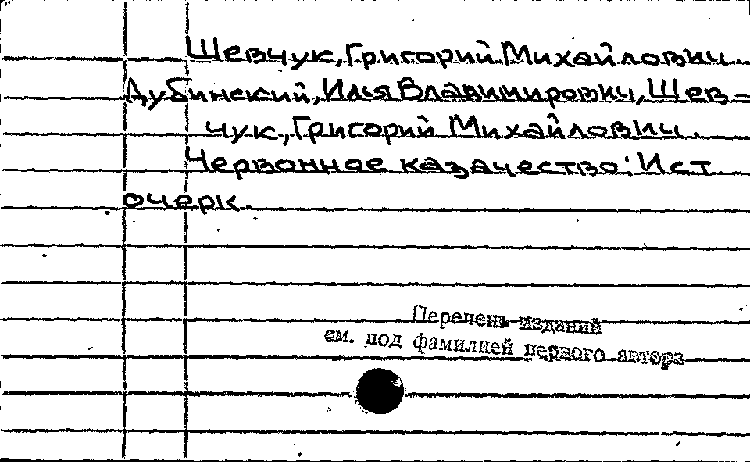 Шевчук, Григорий Михайлович.
Дубинский, Илья Владимирович, Шев-
чук, Григорий Михайлович.
Червонное казачество: Ист
очерк.
Перечень изданий
см. под фамилией первого автора